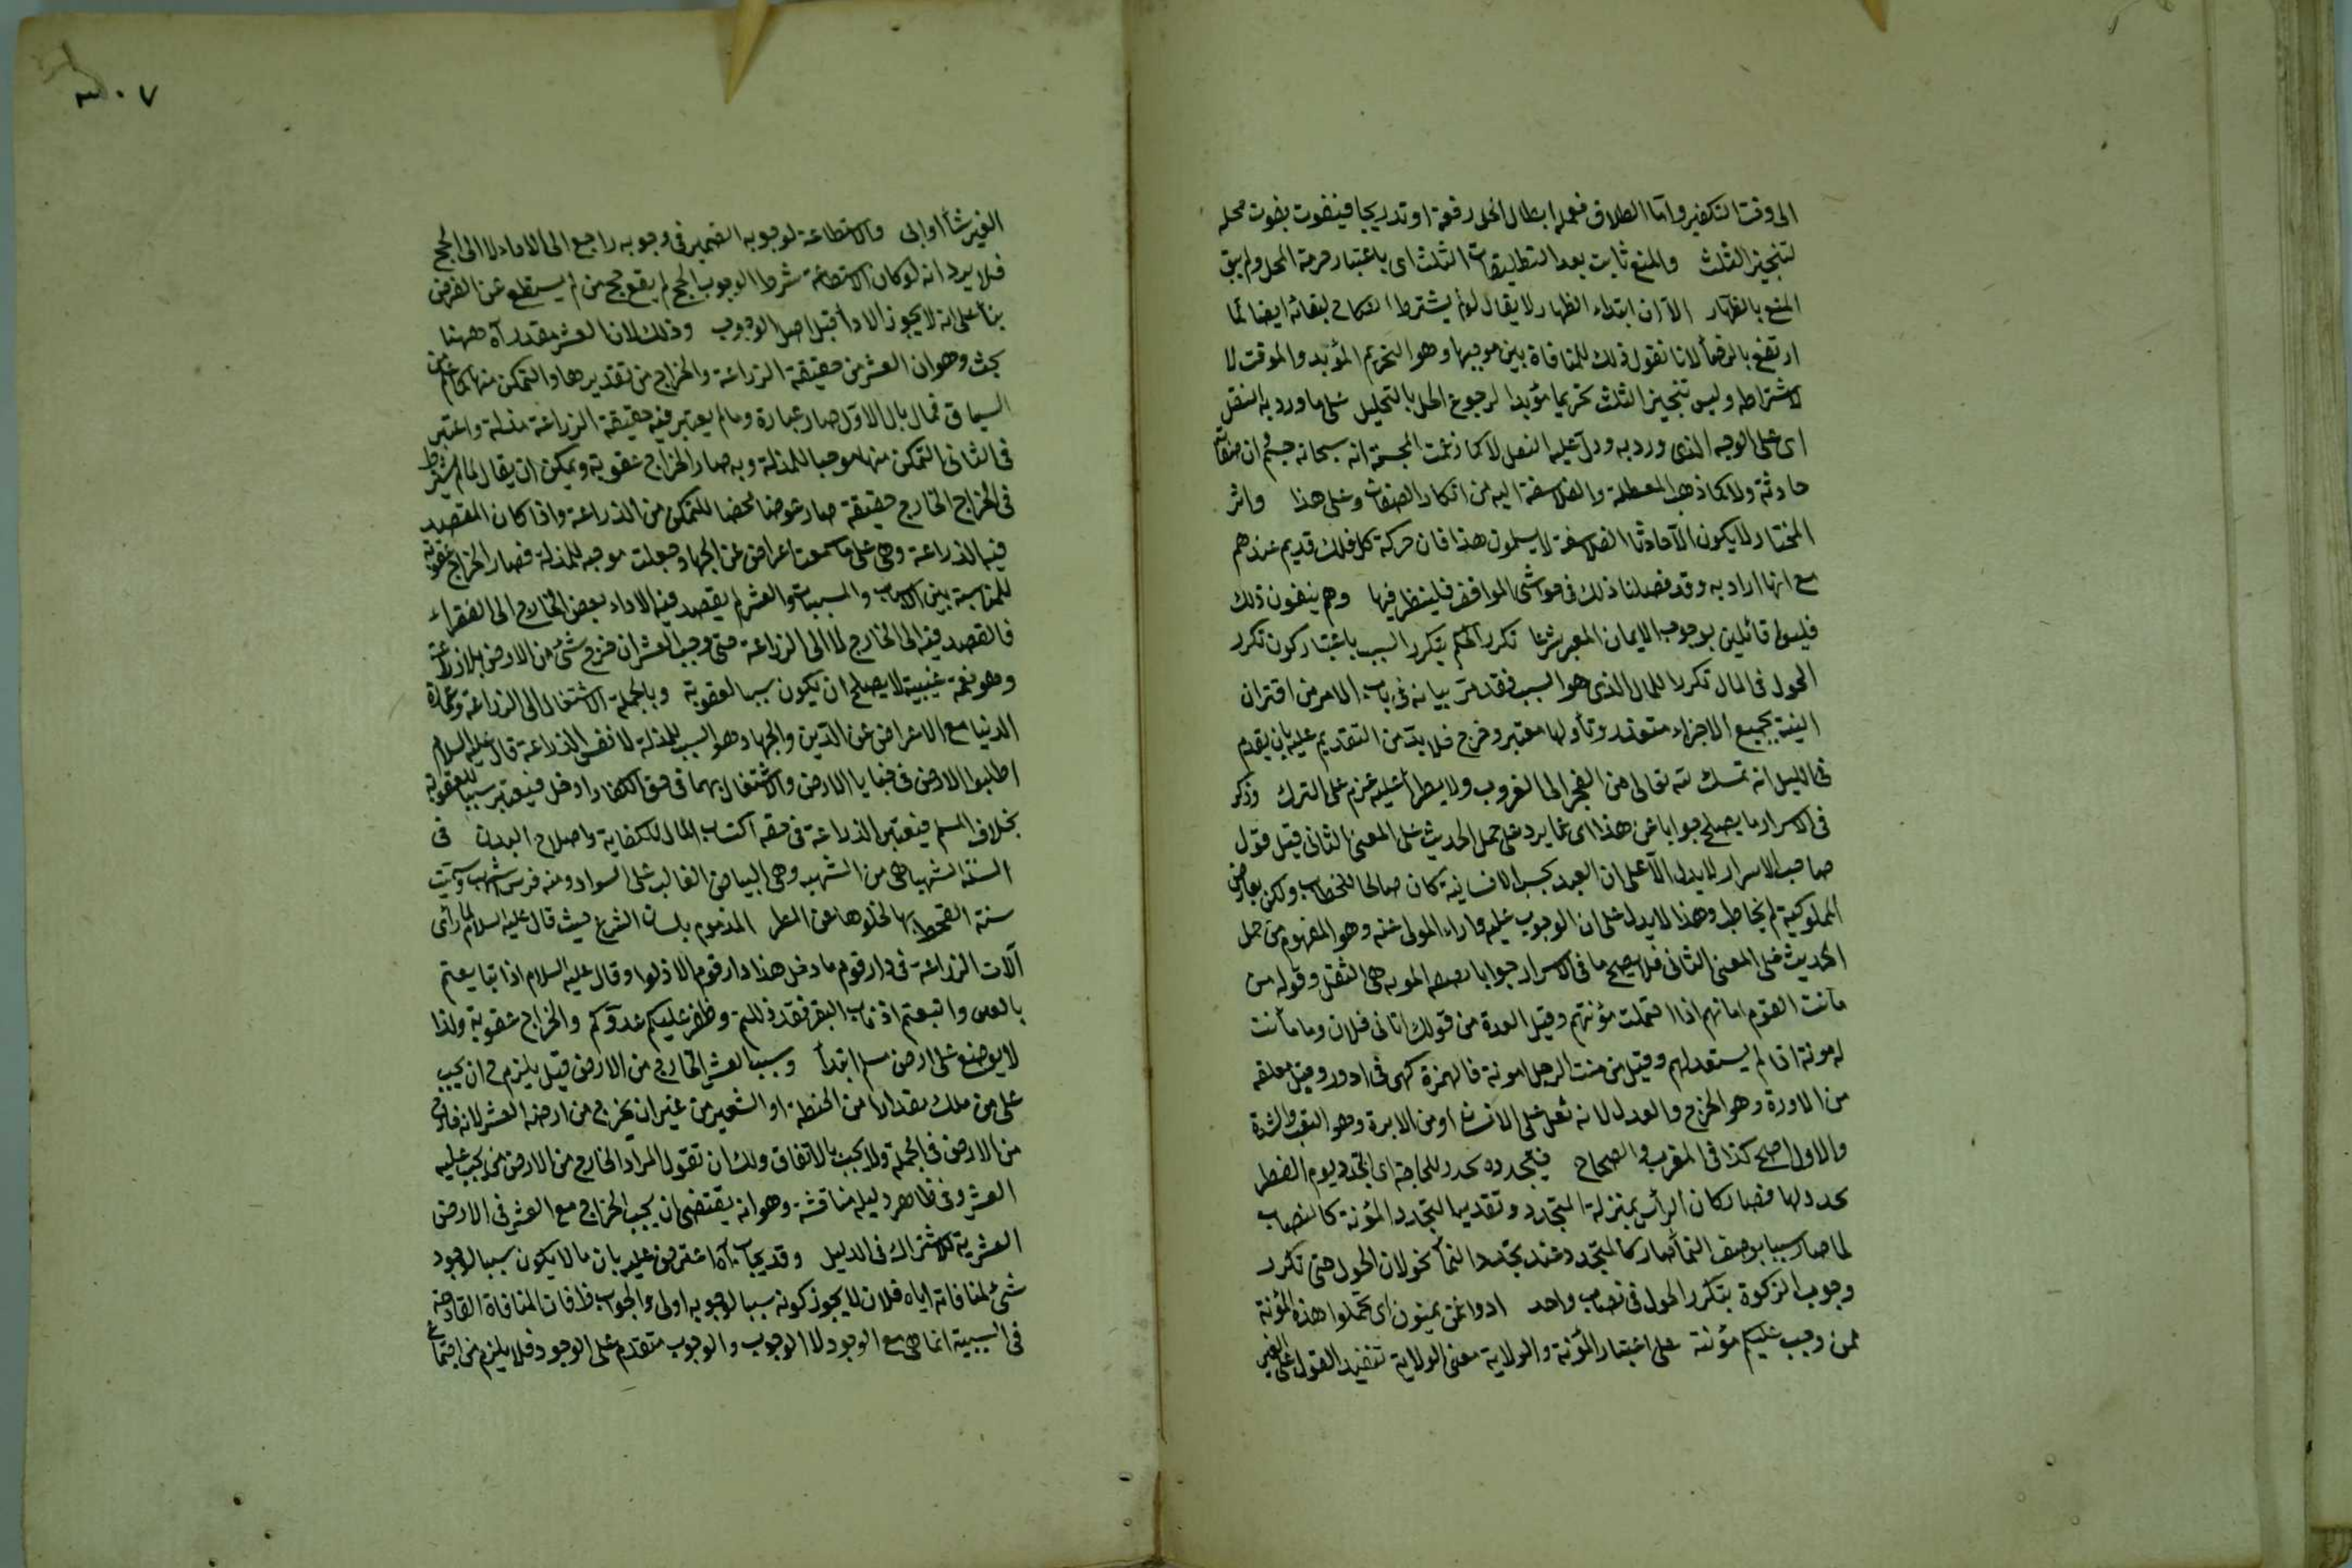 الى وقت التكفير واما الطلاق فعمله ابطال الحل دفعة او تدريجا فيفوت بفوت محله
لتنجيز الثلث والمنع ثابت بعد التطليقات الثلث اى باعتبار حرمة المحل ولم يبق
المنع بالظهار الا ان ابتداء الظهار لا يقال لو لم يشترط النكاح لبقائه ايضا لما
ارتفع بالرضاء لانا نقول ذلك للمنافاة بين موجبها وهو التحريم المؤبد والموقت لا
لاشتراطه وليس تنجيز الثلث تحريما مؤبدا لرجوع الحل بالتحليل على ما ورد به النقل
اى على الوجه الذى ورد به ودل عليه النقل لا كما زعمت المجسمة انه سبحانه جسم وان صفاته
حادثة ولا كما ذهب المعطلة والفلاسفة اليه من انكار الصفات وعلى هذا واثر
المختار لا يكون الا حادثا الفلاسفة لا يسلمون هذا فان حركة كل فلك قديم عندهم
مع انها ارادية وقد فصلنا ذلك فى حواشى المواقف فلينظر فيها وهم ينفون ذلك
فليسوا قائلين بوجوب الايمان المعبر شرعا تكرر الحكم بتكرر السبب باعتبار كون تكرر
الحول فى المال تكررا للمال الذى هو السبب فقد مر بيانه فى باب الامر من اقتران
النية بجميع الاجزاء متعذر وتأولها معتبر وخرج فلا بد من التقديم عليه بان يقدم
فى الليل انه تمسك لله تعالى من الفجر الى الغروب ولا يطرأ عليه عزم على الترك وذكر
فى الاسرار ما يصلح جوابا عن هذا اى عما يرد على حمل الحديث على المعنى الثانى قيل قول
صاحب الاسرار لا يدل الا على ان العبد بحسب الانسانية كان صالحا للخطاب ولكن بعارض
المملوكية لم يخاطب وهذا لا يدل على ان الوجوب عليه واداء المولى عنه وهو المفهوم من حمل
الحديث على المعنى الثانى فلا يصلح ما فى الاسرار جوابا المؤنة هى الثقل وقوله من
مأنت القوم امانهم اذا احتملت مؤنتهم وقيل العدة من قولك اتانى فلان وما مأنت
له مونة اذا لم يستعد لهم وقيل من منت الرجل امونه فالهمزة كهى فى ادور وقيل مفعلة
من الاورة وهو الخرج والعدل لانه ثقل على الانسان او من الابرة وهو التعب والشدة
والاول اصح كذا فى المغرب والصحاح فيتجدده تجدد للحاجة اى يتجدد يوم الفطر
تجدد لها فصار كان الرأس بمنزلة المتجدد وتقديما لتجدد المؤنة كالنصاب
لما صار سببا بوصف النماء صار كالمتجدد عند تجدد النماء بحولان الحول حتى تكرر
وجوب الزكوة بتكرر الحول فى نصاب واحد ادوا عمن تمونون اى تحملوا هذه المؤنة
عمن وجب عليكم مؤنته على اعتبار المؤنة والولاية معنى الولاية تنفيذ القول على الغير
٣٠٧
الغير شاء او ابى والاستطاعة لوجوبه الضمير فى وجوبه راجع الى الاداء لا الى الحج
فلا يرد انه لو كان الاستطاعة شرط الوجوب الحج لم يقع حج من لم يستطع عن الفرض
بناء على انه لا يجوز الاداء قبل اصل الوجوب وذلك لان العشر مقدر آه ههنا
بحث وهو ان العشر من حقيقة الزراعة والخراج من تقديرها والتمكن منها كما علم من
السياق فما بال الاول صار عبادة وما لم يعتبر فيه حقيقة الزراعة مذلة واعتبر
فى الثانى التمكن منها موجبا للمذلة وبه صار الخراج عقوبة ويمكن ان يقال لما لم يشترط
فى الخراج الخارج حقيقة صار عوضا محضا للتمكن من الزراعة واذا كان المقصد
فيه الزراعة وهى على ما سمعت اعراض عن الجهاد جعلت موجبه للمذلة فصار الخراج عقوبة
للمناسبة بين الاسباب والمسببات والعشر لم يقصد فيه الا اداء بعض الخارج الى الفقراء
فالقصد فيه الى الخارج لا الى الزراعة حتى وجب العشر ان خرج شئ من الارض بلا زراعة
وهو نعمة غيبية لا يصلح ان يكون سببا لعقوبة وبالجملة الاشتغال الى الزراعة وعمارة
الدنيا مع الاعراض عن الدين والجهاد هو السبب للمذلة لا نفس الزراعة قال عليه السلام
اطلبوا الارض فى خبايا الارض والاشتغال بهما فى حق الكفار ادخل فيعتبر سببا للعقوبة
بخلاف المسلم فيعتبر الزراعة فى حقه اكتساب المال للكفاية واصلاح البدن فى
السنة الشهباء هى من الشهبة وهى البياض الغالب على السواد ومنه فرس اشهب وسميت
سنة القحط بها لخلوها عن المطر المذموم بلسان الشرع حيث قال عليه السلام لما رأى
آلات الزراعة فى دار قوم ما دخل هذا دار قوم الا ذلوا وقال عليه السلام اذا تبايعتم
بالعين واتبعتم اذناب البقر فقد ذللتم وظفر عليكم عدوكم والخراج عقوبة ولذا
لا يوضع على ارض مسلم ابتداء وسبب العشر الخارج من الارض قيل يلزم ح ان يجب
على من ملك مقدارا من الحنطة او الشعير من غير ان يخرج من ارضه العشر لانه خارج
من الارض فى الجملة ولا يجب بالاتفاق ولك ان تقول المراد الخارج من الارض من يجب عليه
العشر وفى ظاهر دليله مناقشة وهو انه يقتضى ان يجب الخراج مع العشر فى الارض
العشرية للاشتراك فى الدليل وقد يجاب آه اعترض عليه بان ما لا يكون سببا لوجود
شئ لمنافاته اياه فلان لا يجوز كونه سببا لوجوبه اولى والجواب ظ فان المنافاة القادحة
فى السببية انما هى مع الوجود لا الوجوب والوجوب متقدم على الوجود فلا يلزم من اجتماع